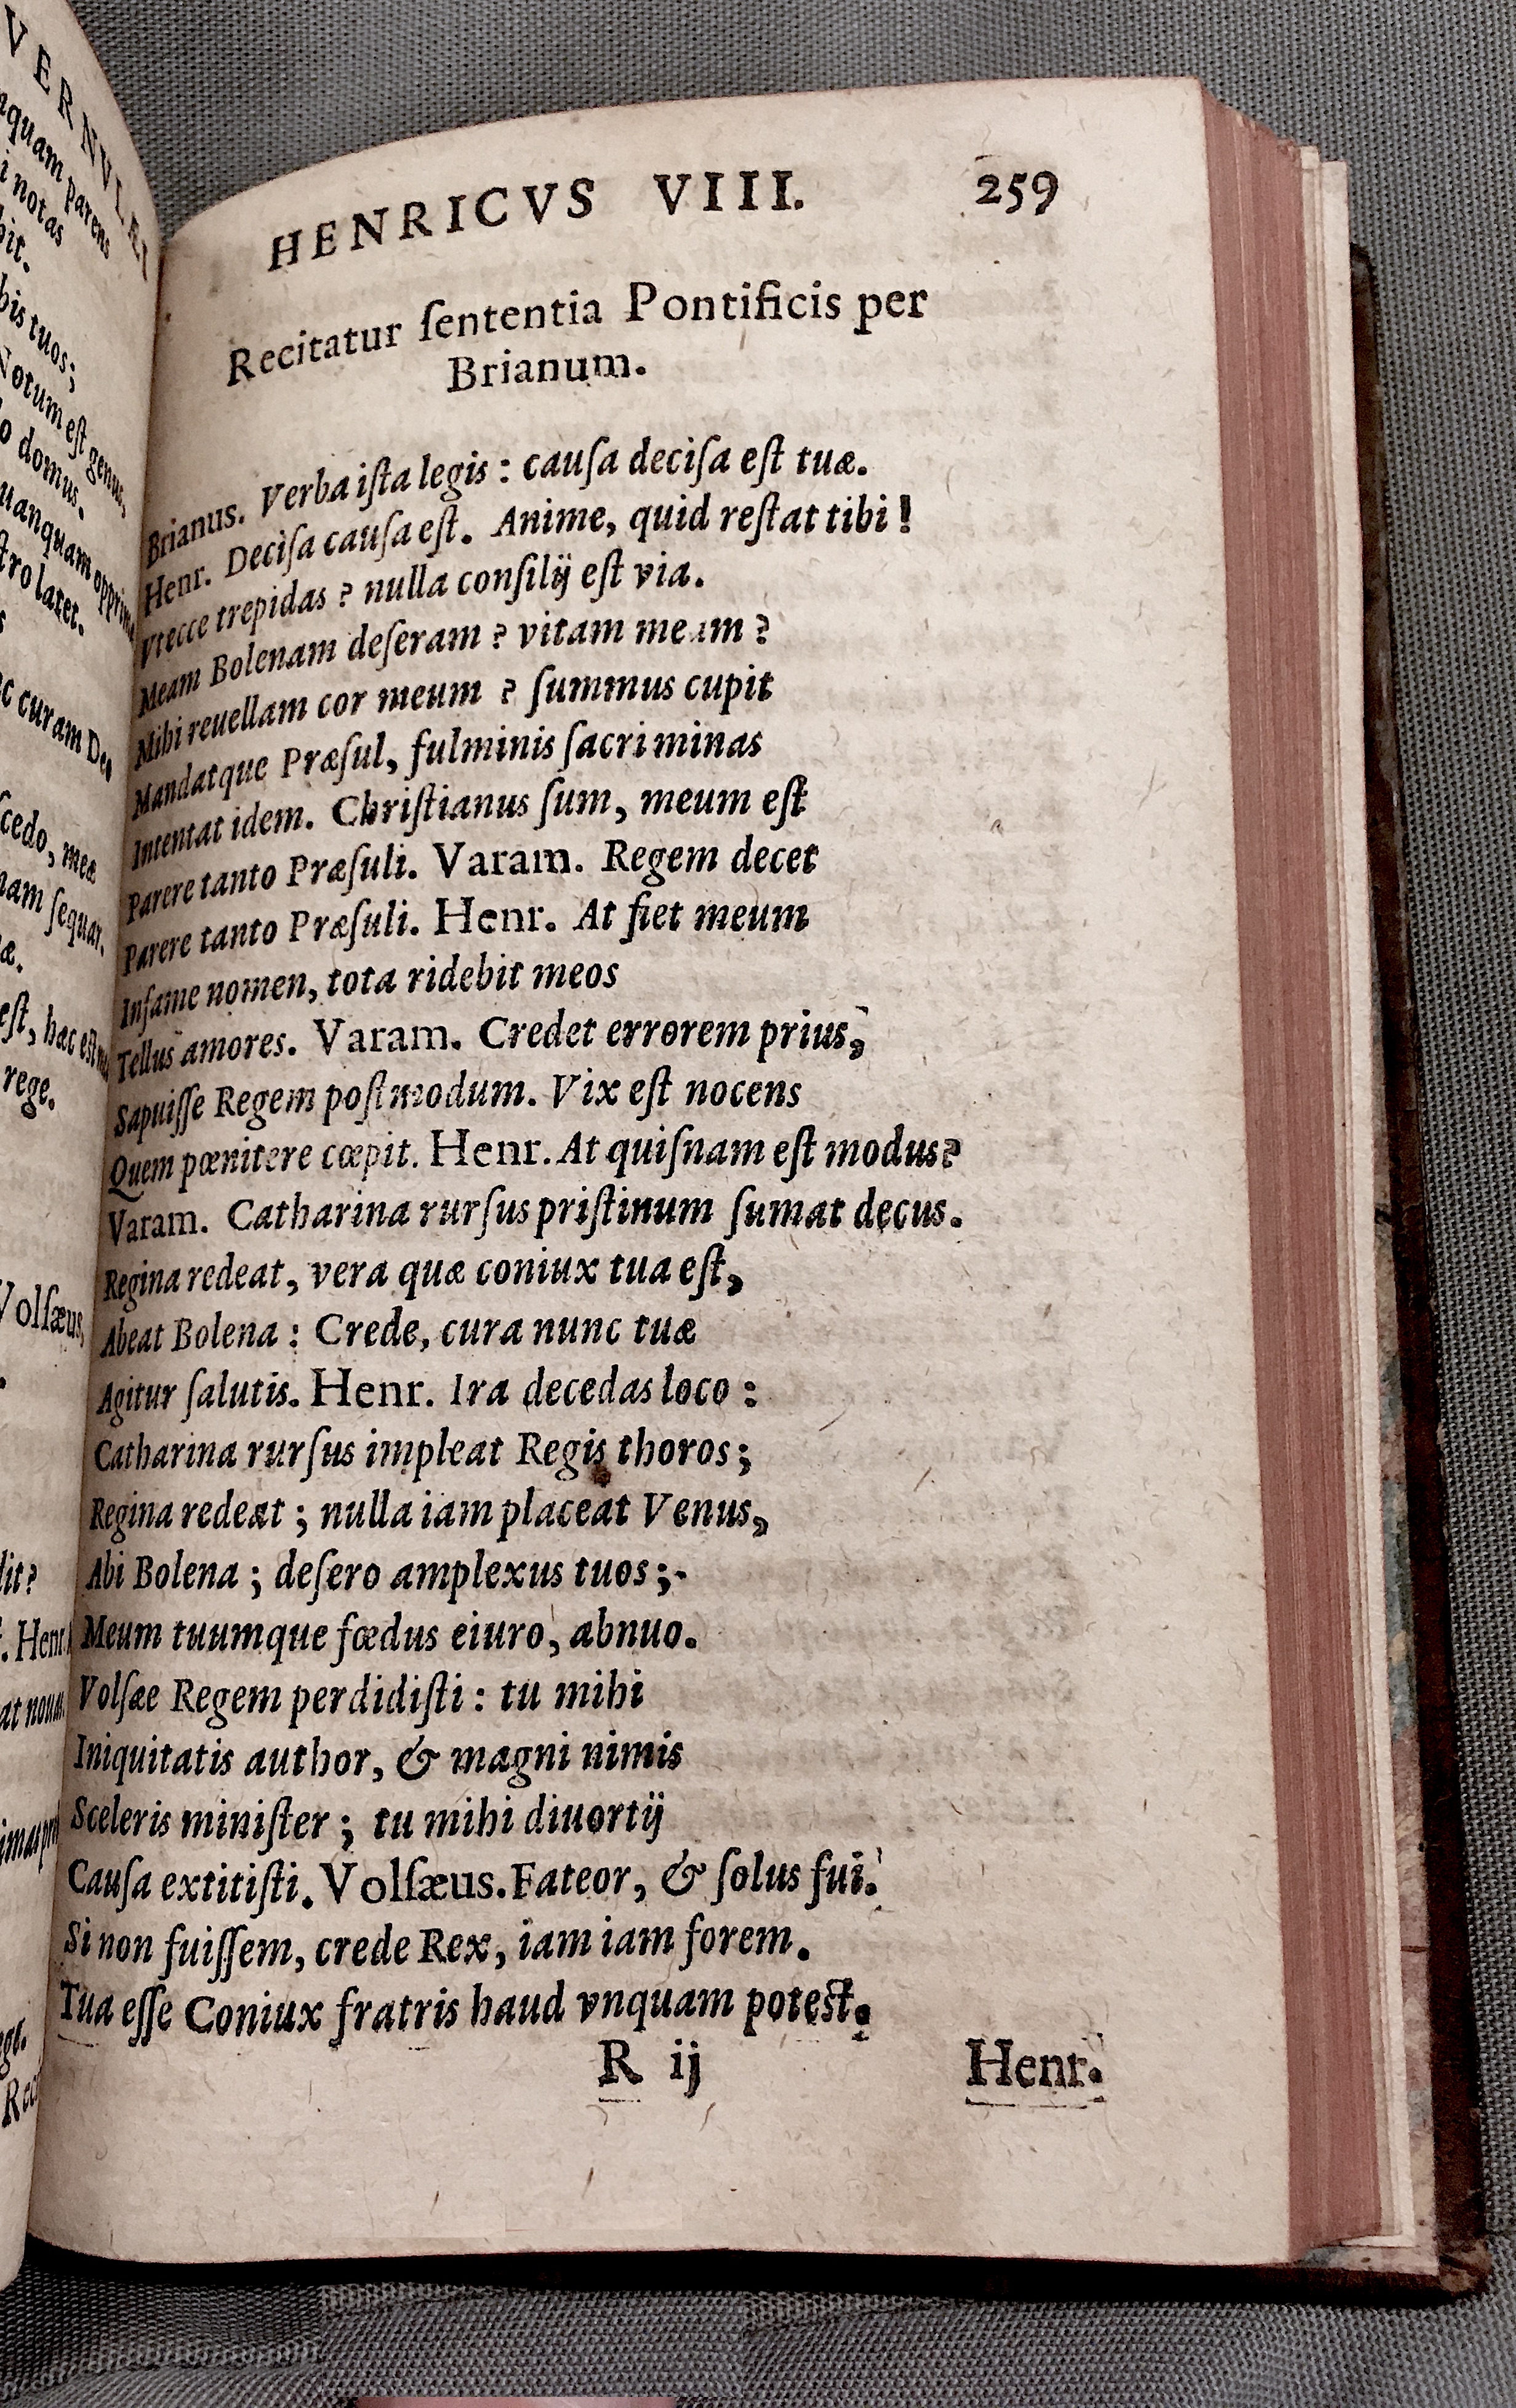 VERNVLÆI
quam parens
i notas
bit.
bis tuos;
Notum eſt genus,
o domus.
uanquam opprima
ſtro latet.
s
c curam Deo
ſcedo, meæ
nam ſequar.
æ.
eſt, hæc eſt
rege.
Volſæus,
.
dit?
. Henr.
at nouas
imas
ge.
Reci
HENRICVS VIII. 259
Recitatur ſententia Pontificis per
Brianum.
Brianus. Verba iſta legis : cauſa deciſa eſt tuæ.
Henr. Deciſa cauſa eſt. Anime, quid reſtat tibi !
Vtecce trepidas ? nulla conſilij eſt via.
Meam Bolenam deſeram ? vitam meam ?
Mihi reuellam cor meum ? ſummus cupit
Mandatque Præſul, fulminis ſacri minas
Intentat idem. Chriſtianus ſum, meum eſt
Parere tanto Præſuli. Varam. Regem decet
Parere tanto Præſuli. Henr. At fiet meum
Infame nomen, tota ridebit meos
Tellus amores. Varam. Credet errorem prius,
Sapuiſſe Regem poſtmodum. Vix eſt nocens
Quem pœnitere cœpit. Henr. At quiſnam eſt modus?
Varam. Catharina rurſus priſtinum ſumat decus.
Regina redeat, vera quæ coniux tua eſt,
Abeat Bolena : Crede, cura nunc tuæ
Agitur ſalutis. Henr. Ira decedas loco :
Catharina rurſus impleat Regis thoros;
Regina redeat ; nulla iam placeat Venus,
Abi Bolena ; deſero amplexus tuos ;
Meum tuumque fœdus eiuro, abnuo.
Volſæe Regem perdidiſti : tu mihi
Iniquitatis author, & magni nimis
Sceleris miniſter ; tu mihi diuortij
Cauſa extitiſti. Volſæus. Fateor, & ſolus fui.
Si non fuiſſem, crede Rex, iam iam forem.
Tua eſſe Coniux fratris haud vnquam poteſt.
R ij Henr.